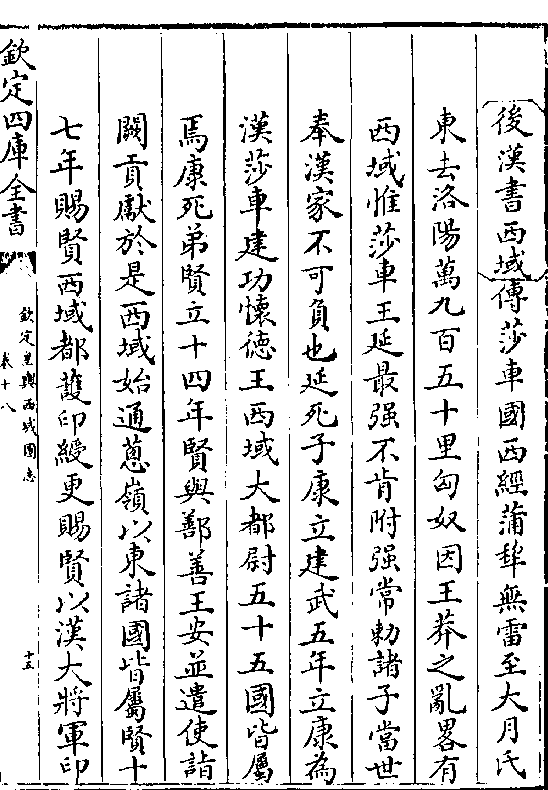 後漢書西域傳莎車國西經蒲犂無雷至大月氏
東去洛陽萬九百五十里匈奴因王莽之亂畧有
西域惟莎車王延最强不肯附强常勅諸子當世
奉漢家不可負也延死子康立建武五年立康為
漢莎車建功懷德王西域大都尉五十五國皆屬
焉康死弟賢立十四年賢與鄯善王安並遣使詣
闕貢獻於是西域始通蔥嶺以東諸國皆屬賢十
七年賜賢西域都護印綬更賜賢以漢大將軍印
欽定四庫全書
欽定皇輿西域圖志
卷十八
十五